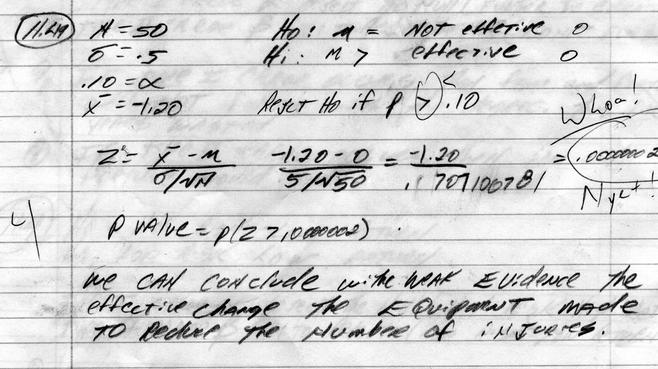 11.64 N = 50 Ho: μ = Not effetive 0
σ = .5 Hi: M > effective 0
.10 = α
x̄ = -1.20 Reject Ho if P > < .10
Whoa!
Z = x̄ - M / σ/√N -1.20 - 0 / 5/√50 = -1.20 / .707106781 = .0000002
Nyet!
4
P VAlue = P(Z > .0000002) .
we CAN conclude with WEAK Evidence the
effective change the EQuipment made
TO Reduce the Number of iNJuries.